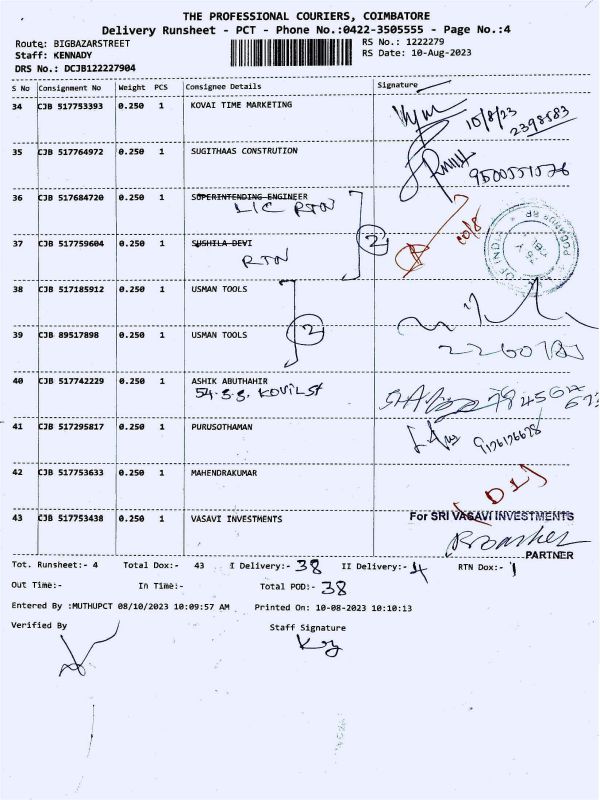 THE PROFESSIONAL COURIERS, COIMBATORE
Delivery Runsheet - PCT - Phone No.:0422-3505555 - Page No.:4
Route: BIGBAZARSTREET RS No.: 1222279
Staff: KENNADY RS Date: 10-Aug-2023
DRS No.: DCJB122227904
S No Consignment No Weight PCS Consignee Details Signature
34 CJB 517753393 0.250 1 KOVAI TIME MARKETING
10/8/23
2398583
35 CJB 517764972 0.250 1 SUGITHAAS CONSTRUTION
36 CJB 517684720 0.250 1 SUPERINTENDING ENGINEER
LIC RTN
37 CJB 517759604 0.250 1 SUSHILA DEVI
2
RTN
38 CJB 517185912 0.250 1 USMAN TOOLS
2
39 CJB 89517898 0.250 1 USMAN TOOLS
40 CJB 517742229 0.250 1 ASHIK ABUTHAHIR
54-S.S. KOVIL St
41 CJB 517295817 0.250 1 PURUSOTHAMAN
42 CJB 517753633 0.250 1 MAHENDRAKUMAR
43 CJB 517753438 0.250 1 VASAVI INVESTMENTS
For SRI VASAVI INVESTMENTS
PARTNER
Tot. Runsheet:- 4 Total Dox:- 43 I Delivery:- 38 II Delivery:- 4 RTN Dox:- 1
Out Time:- In Time:- Total POD:- 38
Entered By :MUTHUPCT 08/10/2023 10:09:57 AM Printed On: 10-08-2023 10:10:13
Verified By Staff Signature